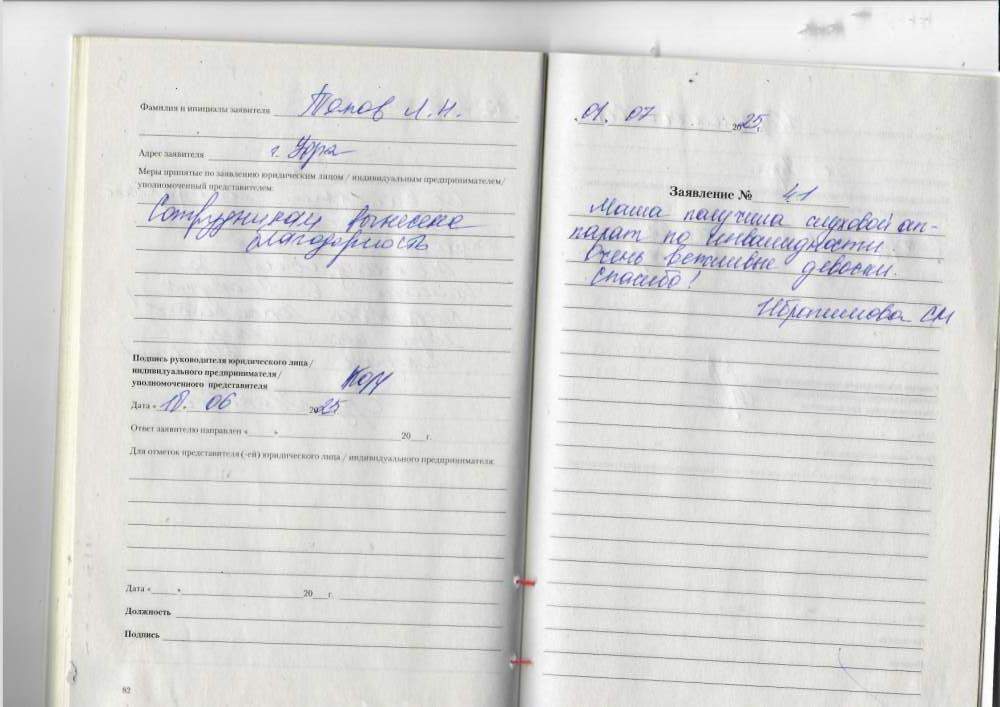 Фамилия и инициалы заявителя Попов Л.Н.
Адрес заявителя г. Уфа
Меры принятые по заявлению юридическим лицом / индивидуальным предпринимателем/
уполномоченный представителем:
Сотрудникам вынесена
благодарность
Подпись руководителя юридического лица /
индивидуального предпринимателя /
уполномоченного представителя
Дата « 18. 06 2025
Ответ заявителю направлен «____» ____ 20__ г.
Для отметок представителя (-ей) юридического лица / индивидуального предпринимателя:
Дата «____» ____ 20__ г.
Должность
Подпись
82
«01. 07 2025 г.
Заявление № 41
Маша получила слуховой ап-
парат по инвалидности.
Очень вежливые девоски.
Спасибо!
Ибрагимова СМ